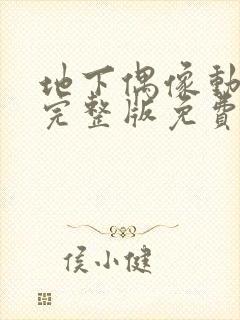 地下偶像動
完整版免費
侯小健